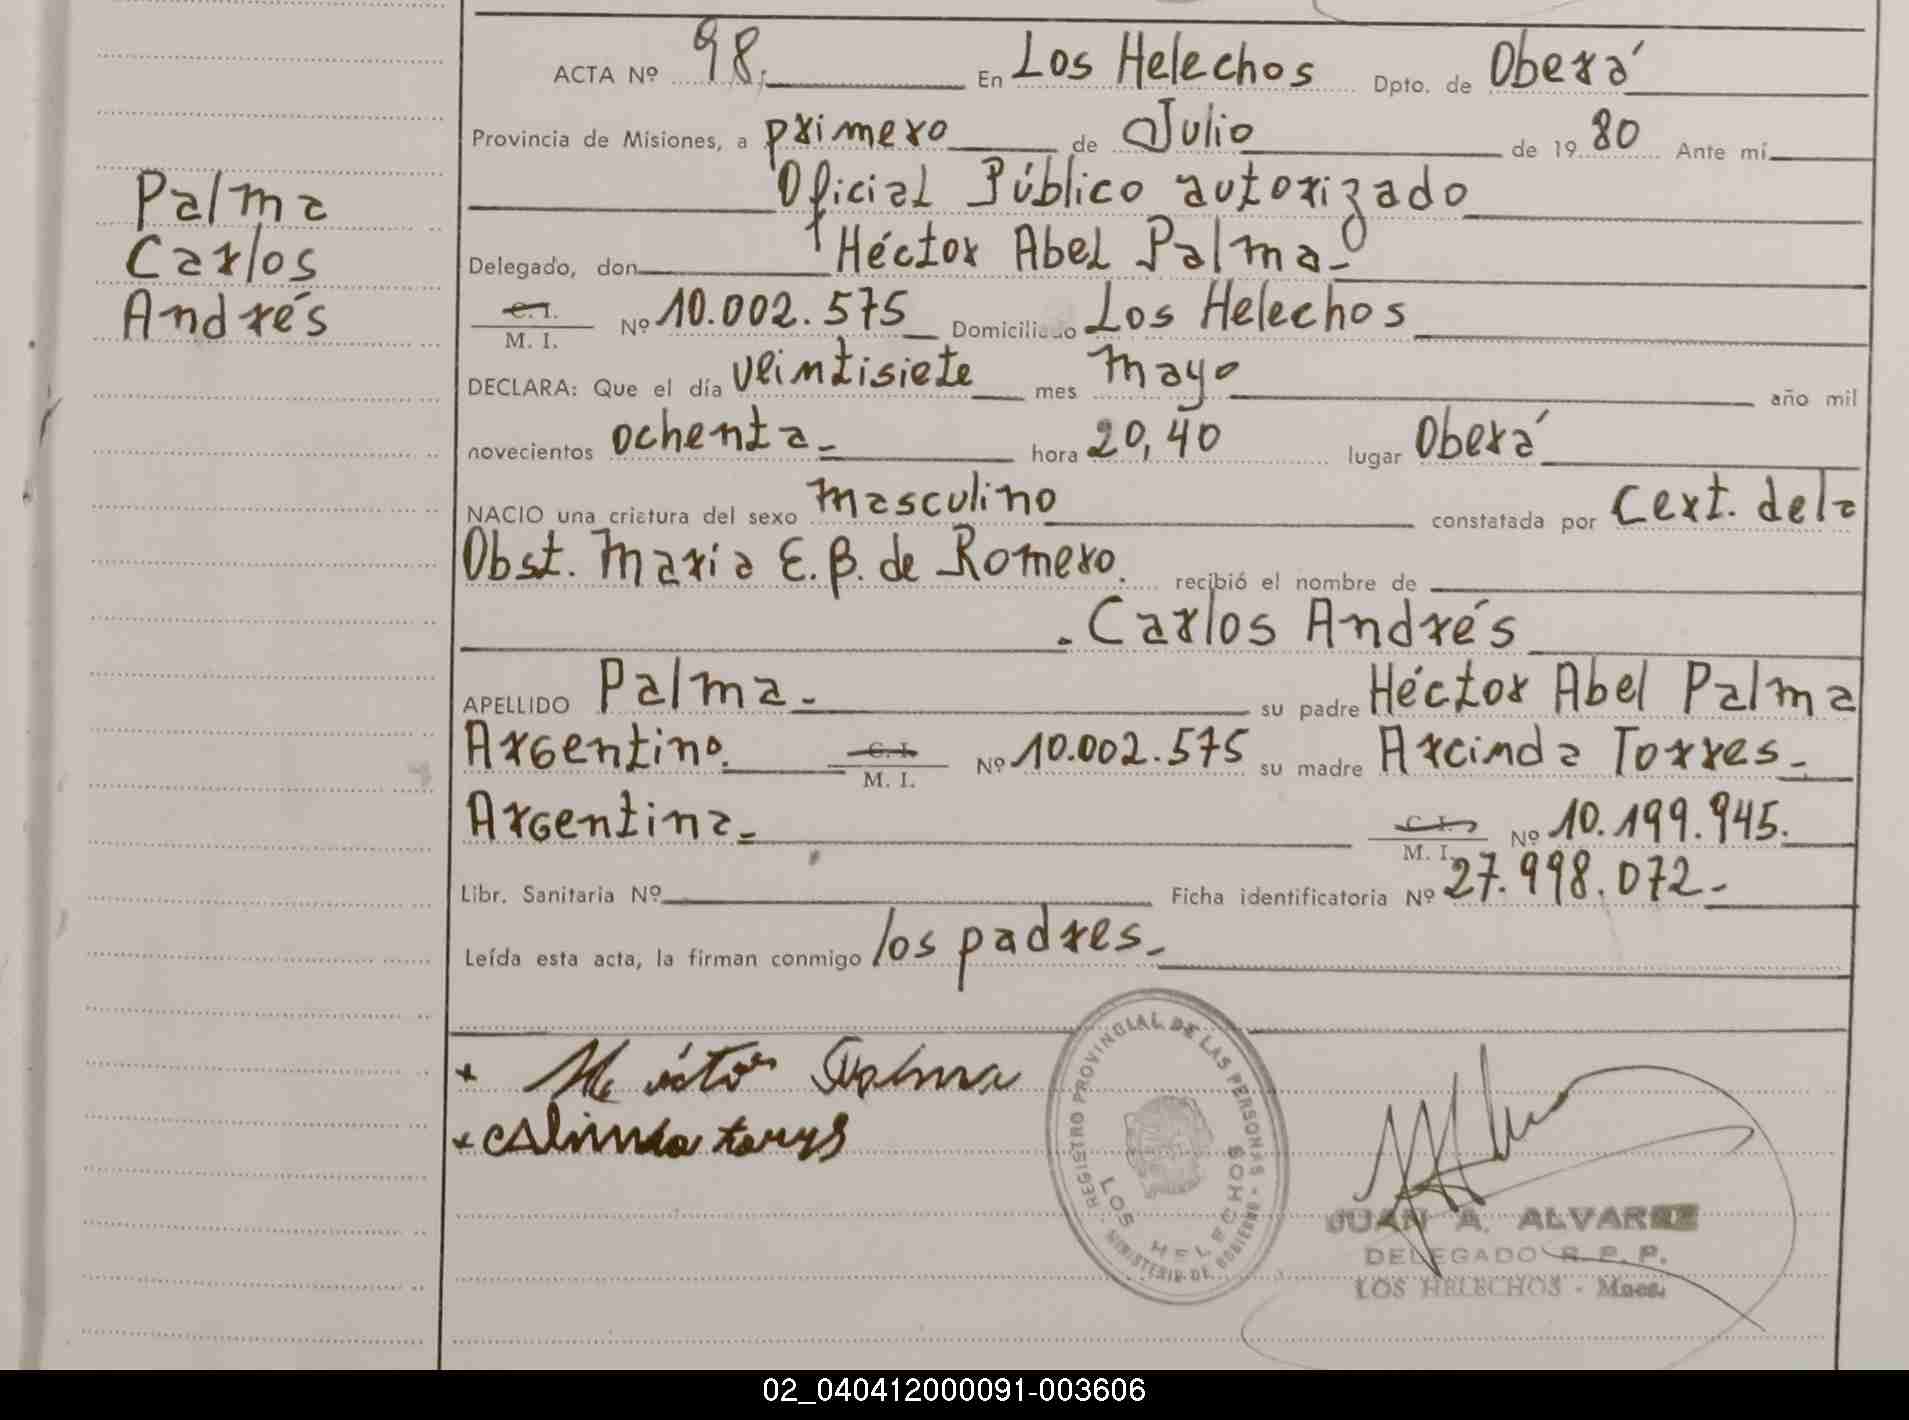 ACTA Nº 98. En Los Helechos Dpto. de Oberá
Provincia de Misiones, a primero de Julio de 1980 Ante mí
Oficial Público autorizado
Delegado, don Héctor Abel Palma
C. I. / M. I. Nº 10.002.575 Domiciliado Los Helechos
DECLARA: Que el día veintisiete mes mayo año mil
novecientos ochenta hora 20,40 lugar Oberá
NACIO una criatura del sexo masculino constatada por Cert. de la
Obst. Maria E. B. de Romero. recibió el nombre de
Carlos Andrés
APELLIDO Palma su padre Héctor Abel Palma
Argentino. C. I. / M. I. Nº 10.002.575 su madre Arcinda Torres
Argentina C. I. / M. I. Nº 10.199.945.
Libr. Sanitaria Nº Ficha identificatoria Nº 27.998.072
Leída esta acta, la firman conmigo los padres
Palma
Carlos
Andrés
Héctor Palma
REGISTRO PROVINCIAL DE LAS PERSONAS - MINISTERIO DE GOBIERNO
LOS HELECHOS
JUAN A. ALVAREZ
DELEGADO R. P. P.
LOS HELECHOS - Mnes.
02_040412000091-003606